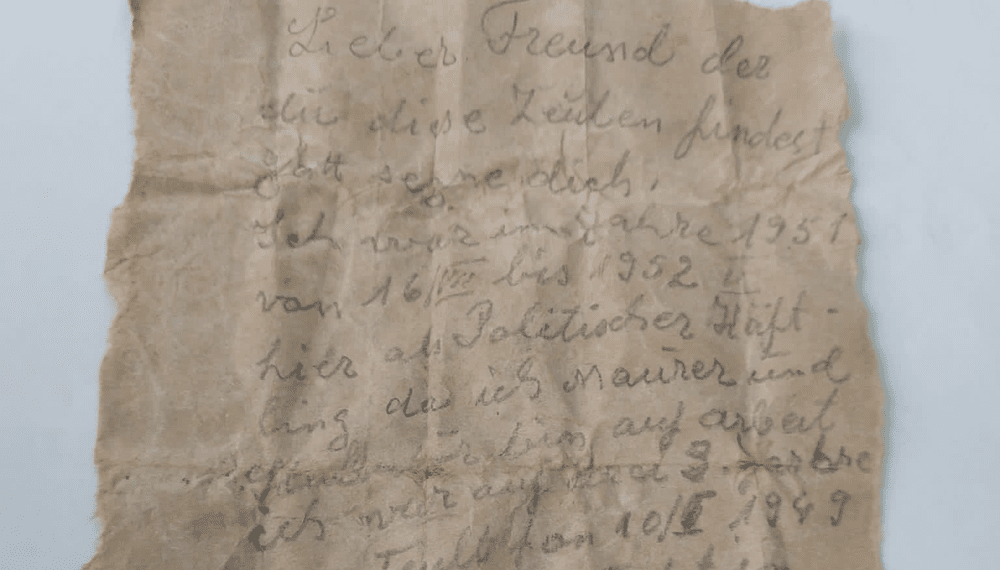 Lieber Freund der
du diese Zeulen findest
Gott segne dich.
Ich war im Jahre 1951
von 16/VII bis 1952 II
hier als Politischer Häft-
ling da ich Maurer und
bin auf arbeit
ich war auf 3. Jahre
von 10/II 1949